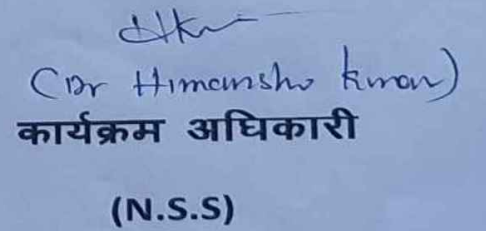 (Dr Himanshu Kumar)
कार्यक्रम अधिकारी
(N.S.S)